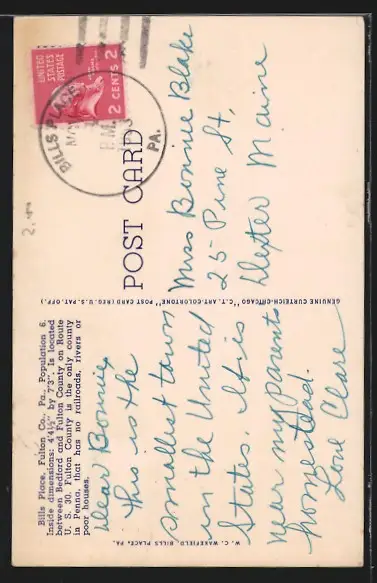 Bills Place, Fulton Co., Pa., Population 6.
Inside dimensions: 4'4½" by 7'3". Is located
between Bedford and Fulton County on Route
U. S. 30. Fulton County is the only county
in Penna. that has no railroads, rivers or
poor houses.
Dear Bonnie,
This is the
smallest town
in the United
States. It is
near my parents
home.
Love Clare
W. C. WAKEFIELD, BILLS PLACE, PA.
GENUINE CURTEICH-CHICAGO "C.T. ART-COLORTONE" POST CARD (REG. U.S. PAT. OFF.)
POST CARD
BILLS PLACE
P.M.
PA.
UNITED
STATES
POSTAGE
2 CENTS 2
Miss Bonnie Blake
25 Pine St,
Dexter Maine